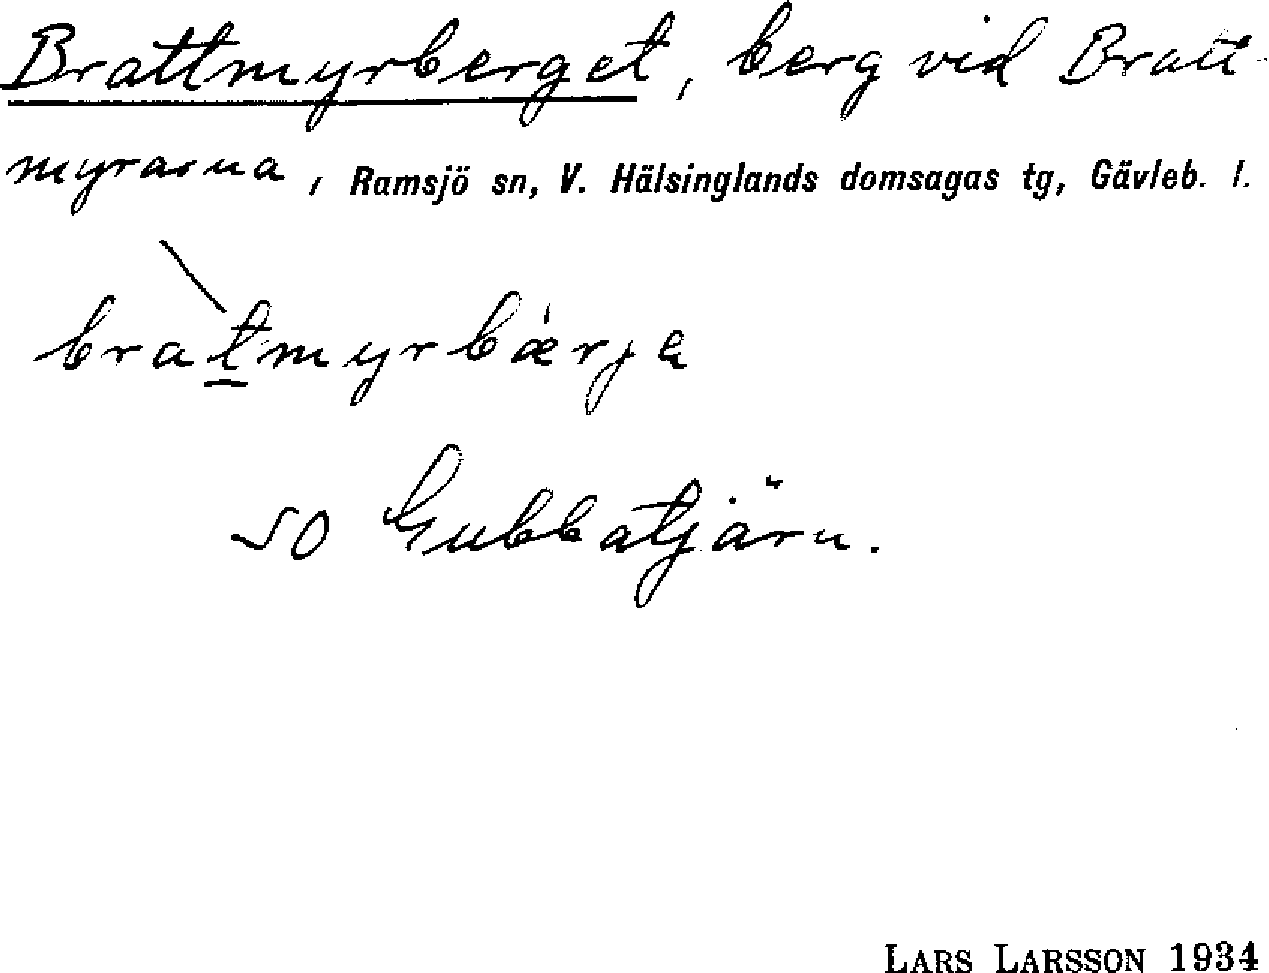 Brattmyrberget, berg vid Bratt-
myrarna, Ramsjö sn, V. Hälsinglands domsagas tg, Gävleb. l.
bratmyrbærja
SO Gubbatjärn.
LARS LARSSON 1934